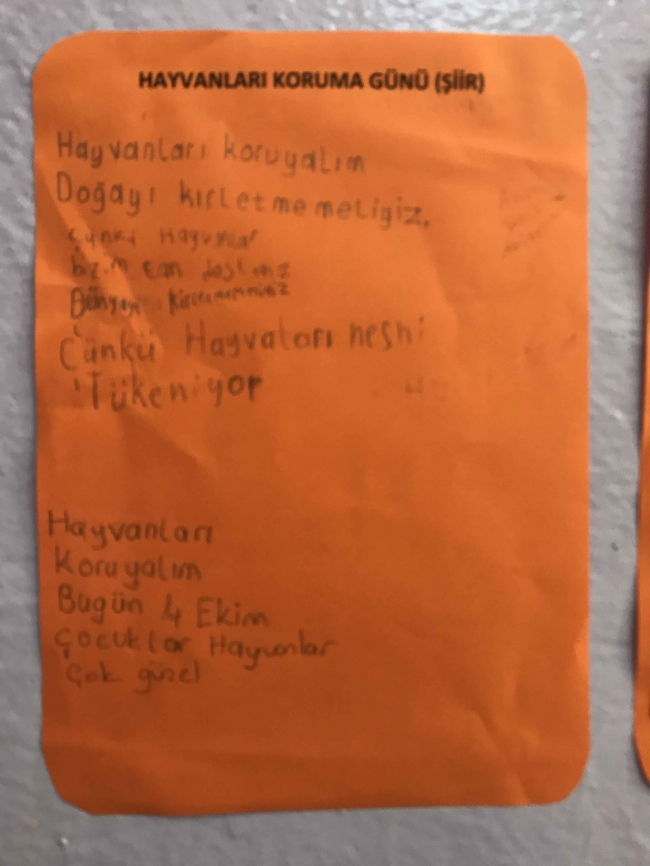 HAYVANLARI KORUMA GÜNÜ (ŞİİR)
Hayvanları koruyalım
Doğayı kırletmemeligiz.
çünkü Hayvnlar
bizim
Çünkü Hayvaları neshi
Tükeniyor
Hayvanları
Koruyalım
Bugün 4 Ekim
Çocuklar Hayvanlar
Çok güzel